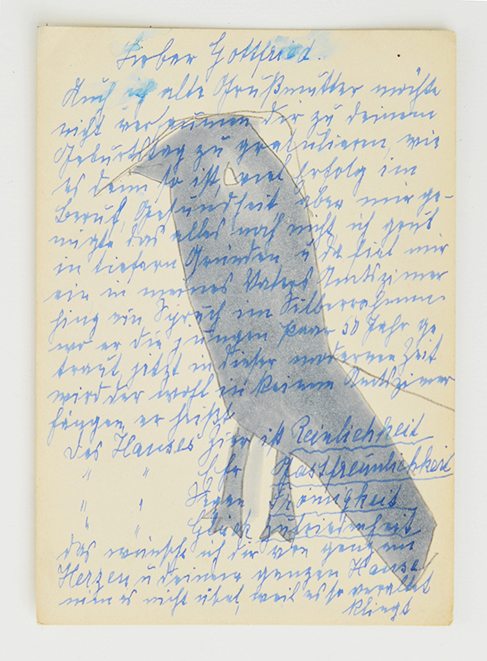 Lieber Gottfried.
Auch ich alte Großmutter möchte
nicht versäumen dir zu deinem
Geburtstag zu gratulieren, wie
es denn so ist, viel Erfolg im
Beruf, Gesundheit aber mir ge-
nügte das alles noch nicht, ich grub
in tiefern Gründen u. da fiel mir
ein in meines Vaters Amtszimer
hing ein Spruch im Silberrahmen.
wo er die jungen Paar 50 Jahr ge
traut, jetzt in dieser modernen Zeit
wird der wohl in keinem Amtszimer
hängen, er heißt
Des Hauses Zier ist Reinlichkeit
" " Ehr Gastfreunlichkeit
" " Segen Frömigkeit
" " Glück Zufriedenheit
das wünsch ich dir von ganzem
Herzen u deinem ganzen Hause
nim es nicht übel, weil es so veraltet
klingt